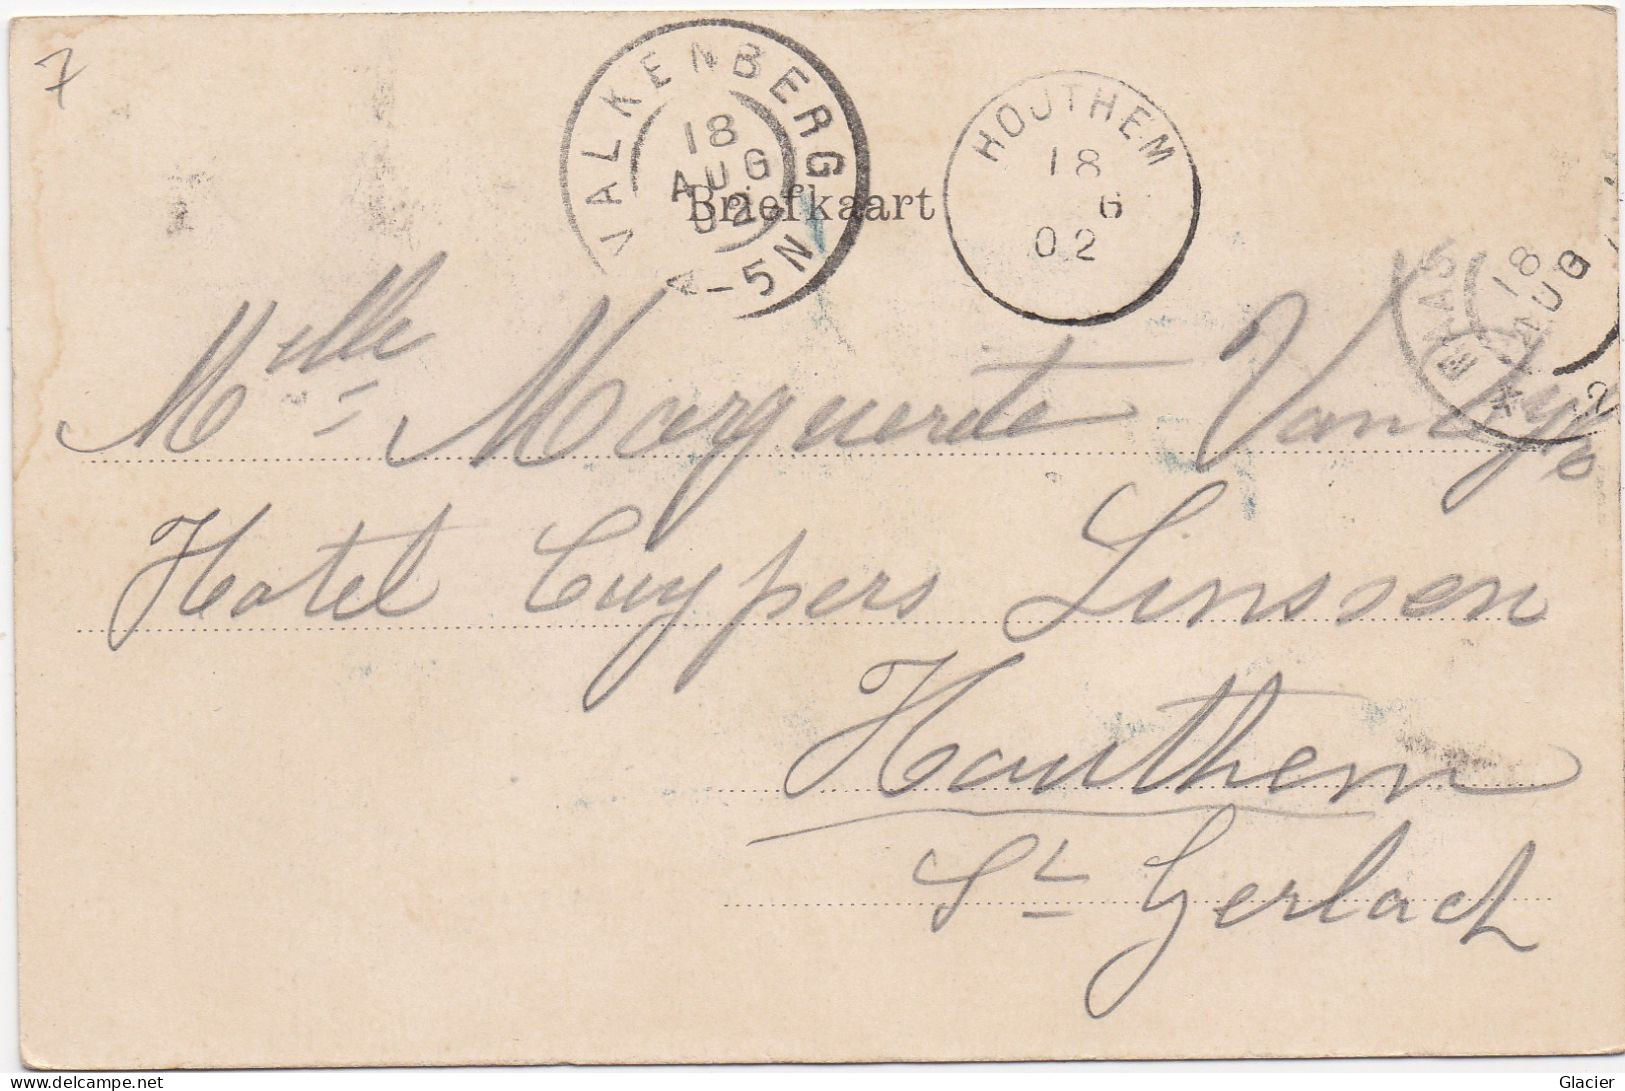 7
VALKENBERG
18
AUG
02
4-5N
HOUTHEM
18
6
02
Briefkaart
18
AUG
2
Melle Marguerite Van
Hotel Cuypers Linssen
Houthem
St Gerlach
Glacier